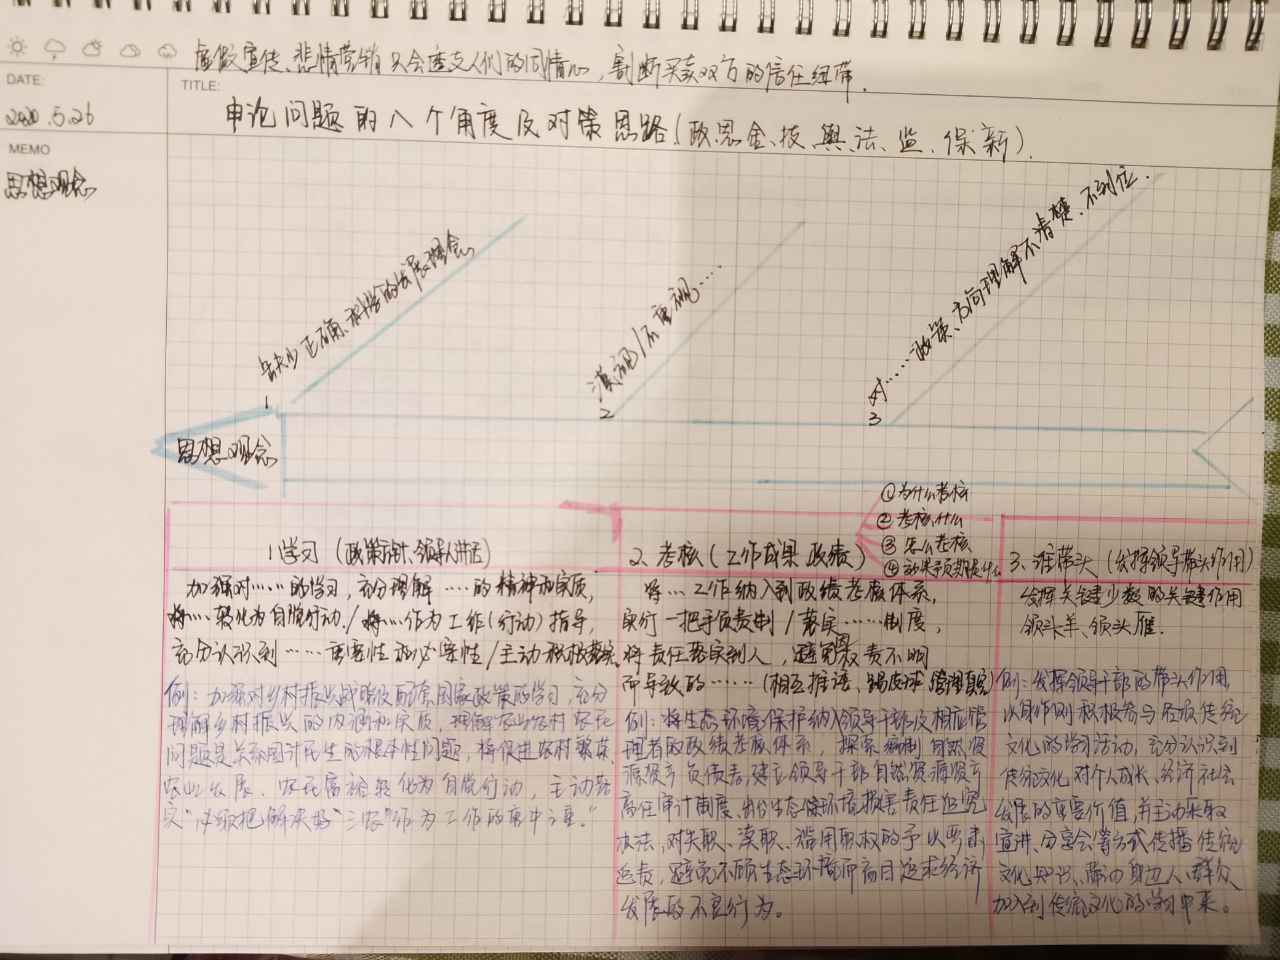 虚假宣传、悲情营销只会透支人们的同情心，割断买卖双方的信任纽带.
DATE:
TITLE:
2020.5.26
申论问题的八个角度及对策思路(政、思、金、技、舆、法、监、保、新).
MEMO
思想观念
缺少正确、科学的发展理念
1
漠视/不重视……
2
对……政策、方向理解不清楚、不到位.
3
思想观念
①为什么考核
②考核什么
③怎么考核
④效果预期是什么
1.学习(政策方针、领导人讲话)
加强对……的学习，充分理解……的精神和实质，
将……转化为自觉行动./将……作为工作(行动)指导，
充分认识到……重要性和必要性/主动积极落实
例：加强对乡村振兴战略及配套国家政策的学习，充分
理解乡村振兴的内涵和实质，理解农业农村农民
问题是关系国计民生的根本性问题，将促进农村繁荣、
农业发展、农民富裕转化为自觉行动，主动落
实"必须把解决好"三农"作为工作的重中之重."
2.考核(工作成果、政绩)
将…工作纳入到政绩考核体系，
实行一把手负责制/落实……制度，
将责任落实到人，避免权责不明
而导致的……(相互推诿、踢皮球、管理真空)
例：将生态环境保护纳入领导干部及相应管
理者的政绩考核体系，探索编制自然资
源资产负债表，建立领导干部自然资源资产
离任审计制度、出台生态环境损害责任追究
办法，对失职、渎职、滥用职权的予以要求
追责，避免不顾生态环境而盲目追求经济
发展的不良行为。
3.谁带头(发挥领导带头作用)
发挥关键少数的关键作用
领头羊、领头雁.
例：发挥领导干部的带头作用，
以身作则积极参与经典传统
文化的学习活动，充分认识到
传统文化对个人成长、经济社会
发展的重要价值，并主动采取
宣讲、分享会等方式传播传统
文化知识、带动身边人、群众
加入到传统文化的学习中来。